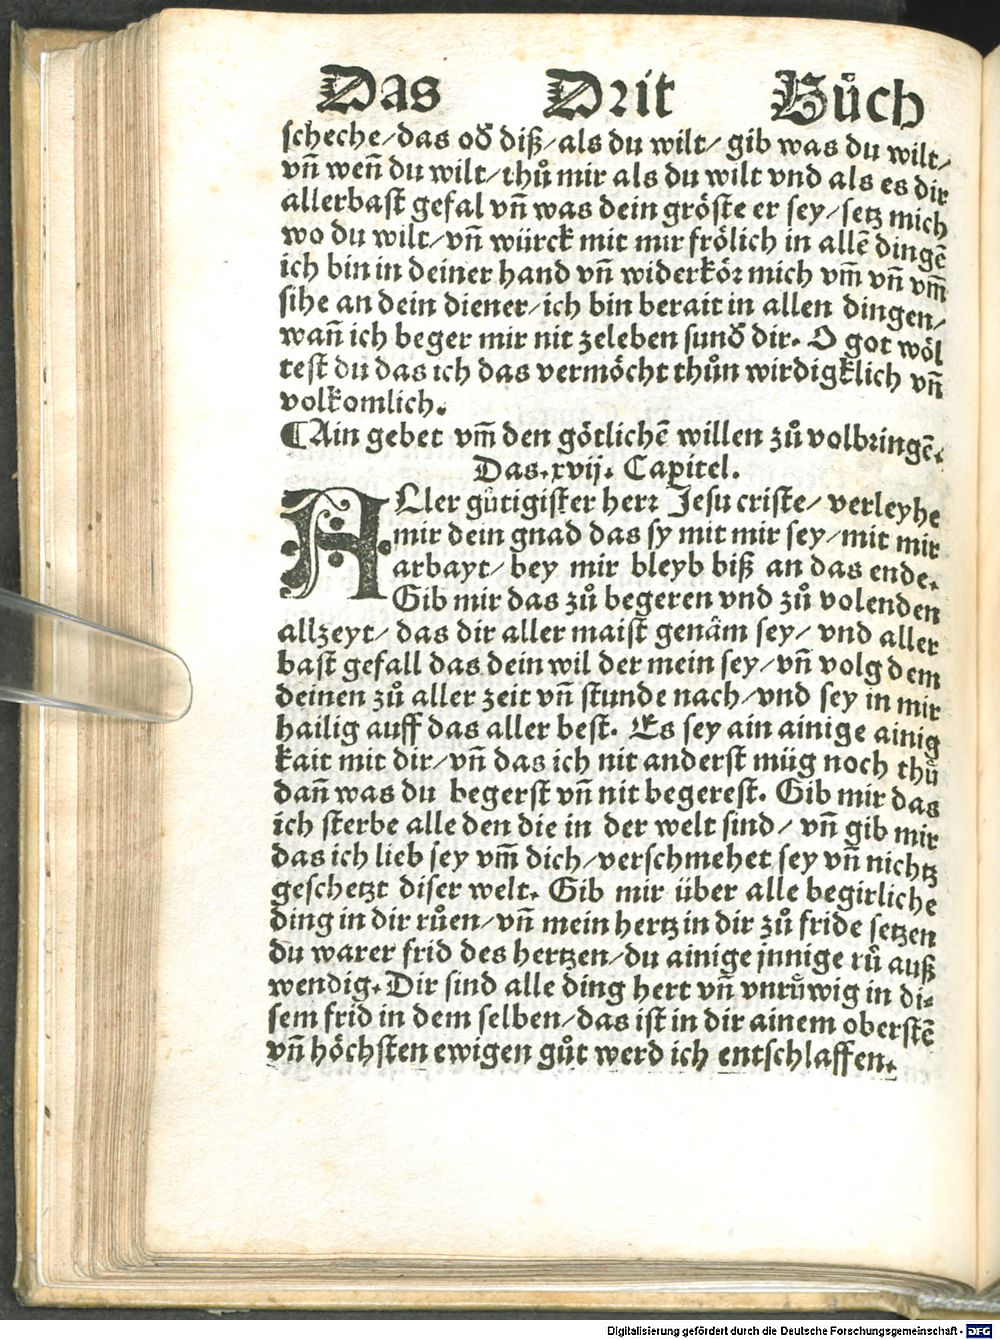 Das Drit Bůch
scheche/das od̕ diß/als du wilt/ gib was du wilt/
vn̄ wen̄ du wilt/thů mir als du wilt vnd als es dir
allerbast gefal vn̄ was dein gröste er sey/setz mich
wo du wilt/vn̄ würck mit mir frölich in allē dingē
ich bin in deiner hand vn̄ widerkör mich vm̄ vn̄ vm̄
sihe an dein diener/ich bin berait in allen dingen/
wan̄ ich beger mir nit zeleben sund̕ dir. O got wöl
test du das ich das vermöcht thůn wirdigklich vn̄
volkomlich.
¶Ain gebet vm̄ den götlichē willen zů volbringē.
Das.xvij. Capitel.
ALler gůtigister herr Jesu criste/ verleyhe
mir dein gnad das sy mit mir sey/mit mir
arbayt/ bey mir bleyb biß an das ende.
Gib mir das zů begeren vnd zů volenden
allzeyt/ das dir aller maist genâm sey/ vnd aller
bast gefall das dein wil der mein sey/vn̄ volg dem
deinen zů aller zeit vn̄ stunde nach/vnd sey in mir
hailig auff das aller best. Es sey ain ainige ainig
kait mit dir/vn̄ das ich nit anderst müg noch thů
dan̄ was du begerst vn̄ nit begerest. Gib mir das
ich sterbe alle den die in der welt sind/ vn̄ gib mir
das ich lieb sey vm̄ dich/verschmehet sey vn̄ nichtz
geschetzt diser welt. Gib mir über alle begirliche
ding in dir růen/vn̄ mein hertz in dir zů fride setzen
du warer frid des hertzen/du ainige jnnige rů auß
wendig. Dir sind alle ding hert vn̄ vnrůwig in di⸗
sem frid in dem selben/das ist in dir ainem oberstē
vn̄ höchsten ewigen gůt werd ich entschlaffen.
Digitalisierung gefördert durch die Deutsche Forschungsgemeinschaft - DFG